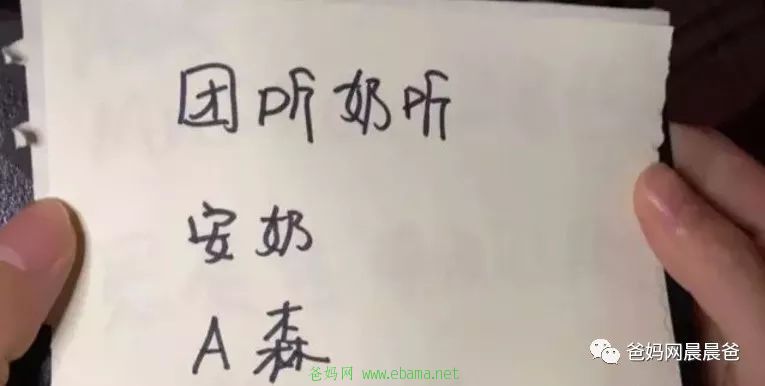 团听奶听
安奶
A森
爸妈网晨晨爸
爸妈网 www.ebama.net